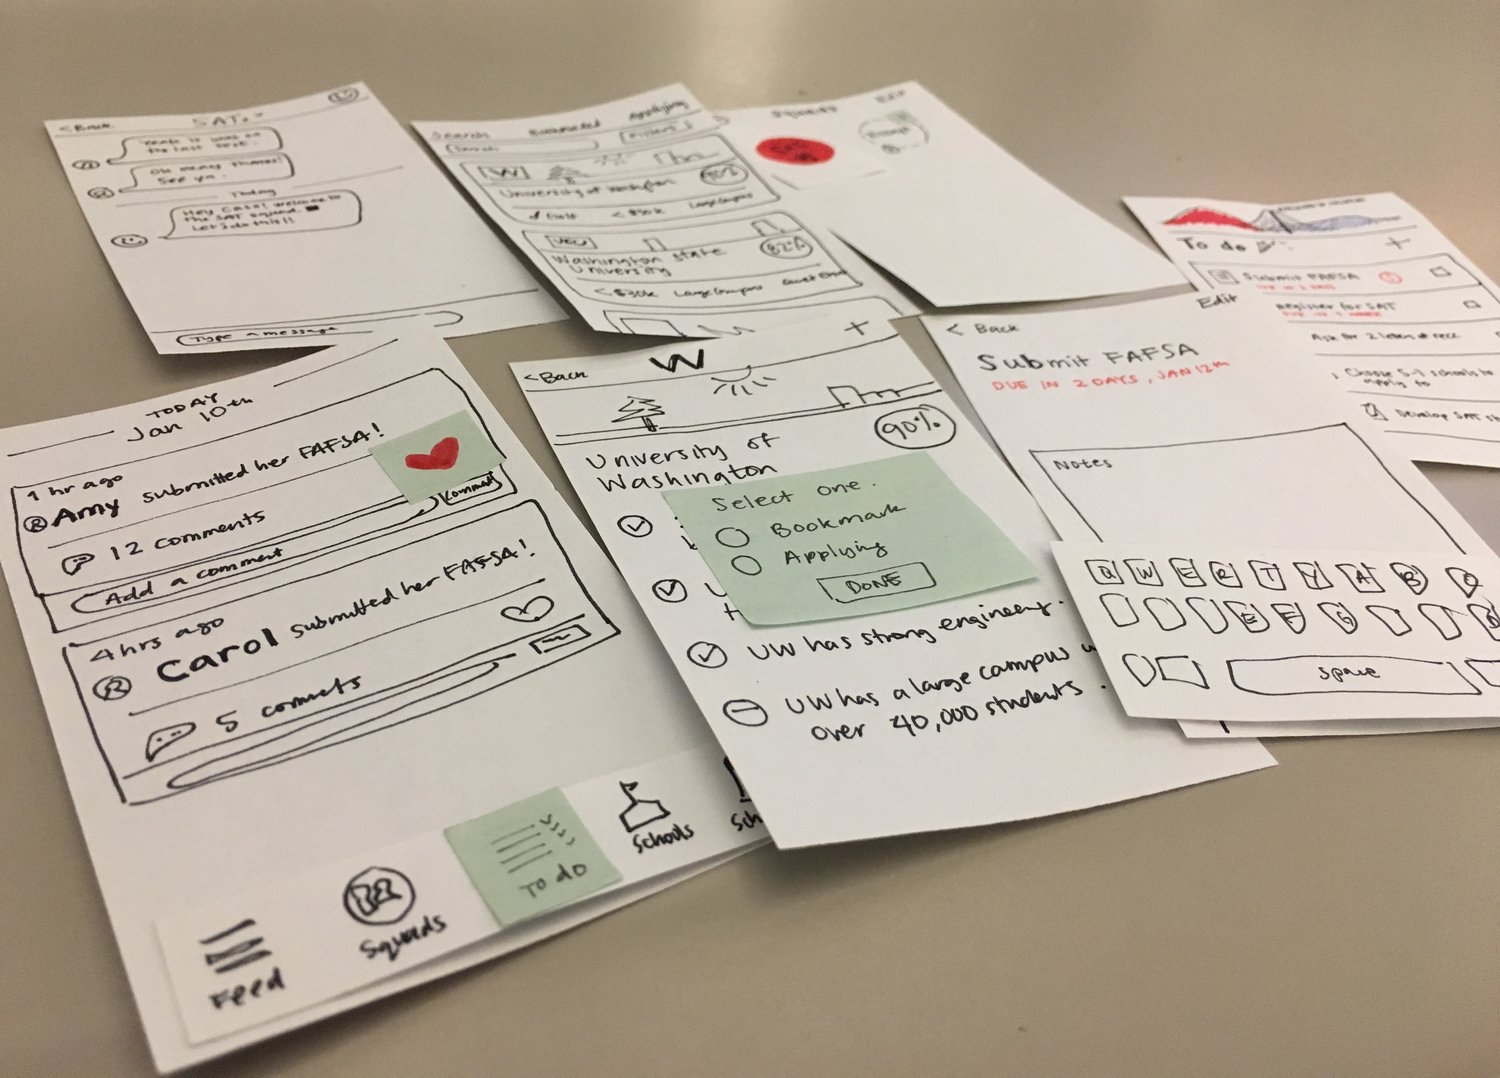 < Back
SAT
Today
Hey Cass! Welcome to
the SAT squad.
Let's do this!!
Type a message
Search
Bookmarked
Applying
Search
Filters
W
University of Washington
90%
< $30k
Large Campus
WSU
Washington State
University
82%
< $30k
Large Campus
Squads
Edit
To do
+
Submit FAFSA
DUE IN 2 DAYS
Register for SAT
DUE IN 1 WEEK
Ask for 2 letters of rec
Choose 5-7 schools to
apply to
Develop SAT
TODAY
Jan 10th
1 hr ago
Amy submitted her FAFSA!
12 comments
Add a comment
Comment
4 hrs ago
Carol submitted her FAFSA!
5 comments
Feed
Squads
To do
Schools
Sch
< Back
W
+
90%
University of
Washington
Select one.
Bookmark
Applying
DONE
UW has strong engineering.
UW has a large campus w
over 40,000 students.
< Back
Edit
Submit FAFSA
DUE IN 2 DAYS, JAN 12th
Notes
Q W E R T Y A B
E F G
space